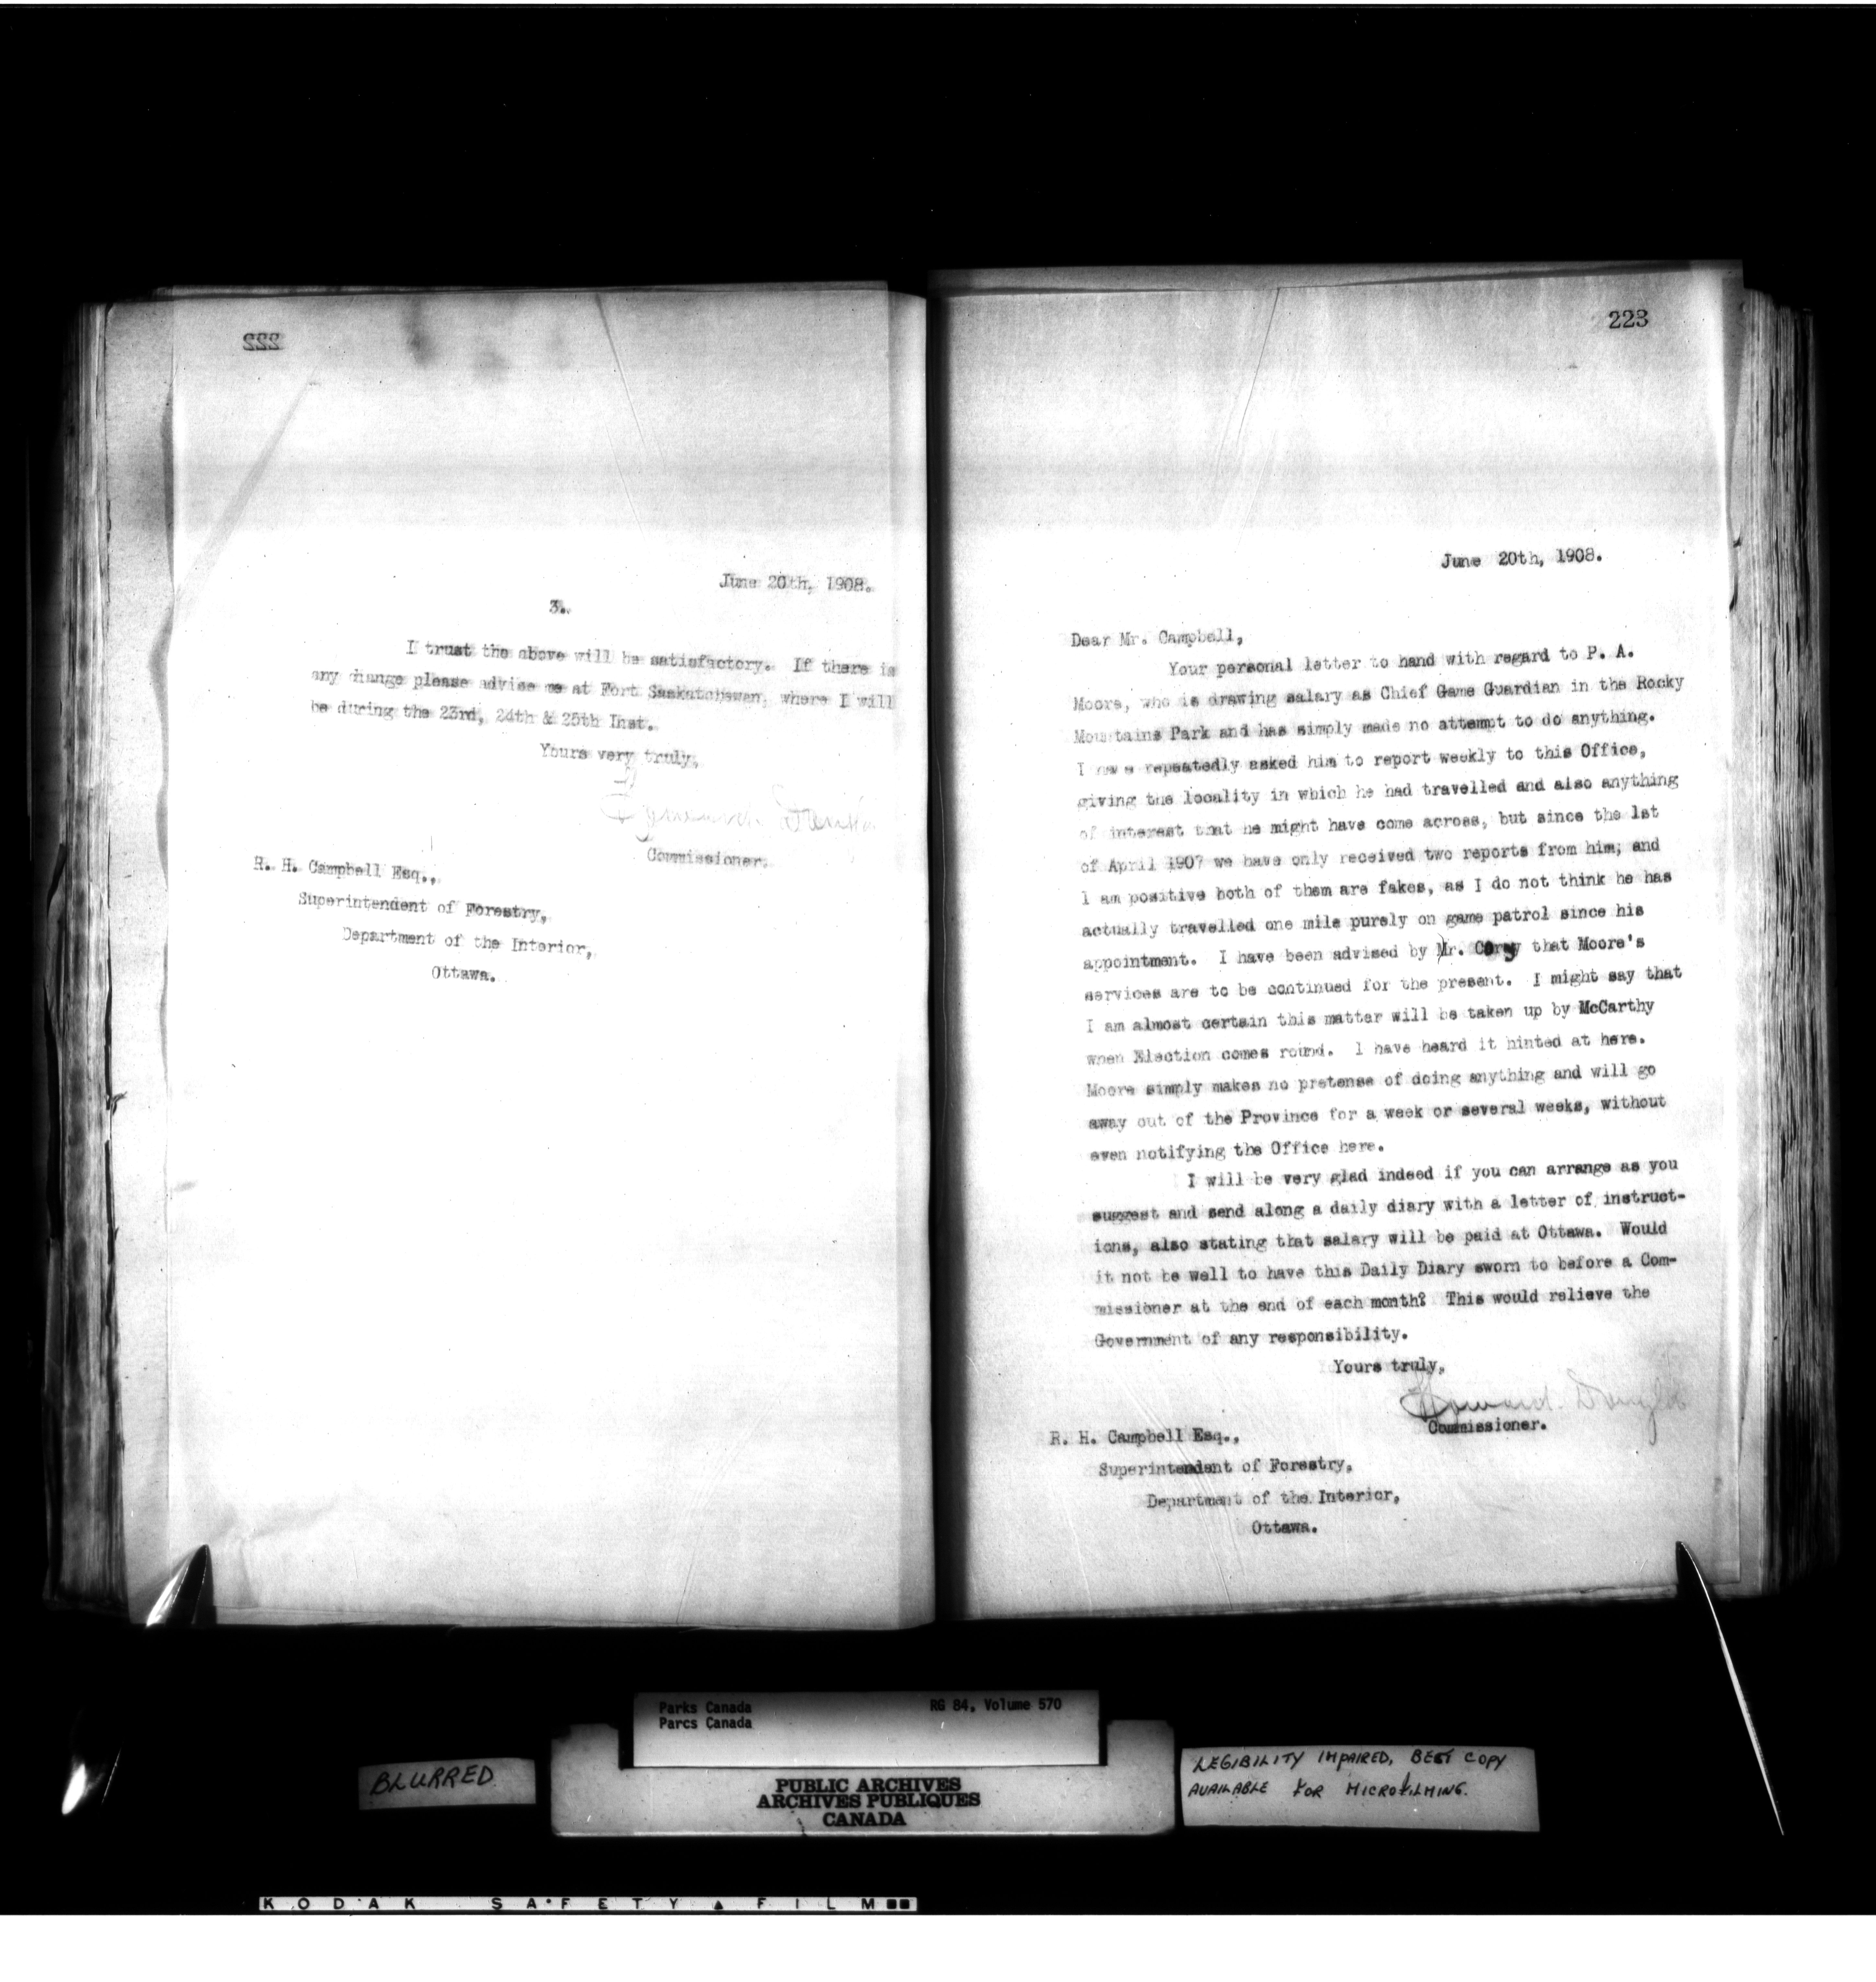 222
June 20th, 1908.
3.
I trust the above will be satisfactory. If there is
any change please advise me at Fort Saskatchewan, where I will
be during the 23rd, 24th & 25th Inst.
Yours very truly,
Commissioner.
R. H. Campbell Esq.,
Superintendent of Forestry,
Department of the Interior,
Ottawa.
223
June 20th, 1908.
Dear Mr. Campbell,
Your personal letter to hand with regard to P. A.
Moore, who is drawing salary as Chief Game Guardian in the Rocky
Mountains Park and has simply made no attempt to do anything.
I have repeatedly asked him to report weekly to this Office,
giving the locality in which he had travelled and also anything
of interest that he might have come across, but since the 1st
of April 1907 we have only received two reports from him; and
I am positive both of them are fakes, as I do not think he has
actually travelled one mile purely on game patrol since his
appointment. I have been advised by Mr. Cory that Moore's
services are to be continued for the present. I might say that
I am almost certain this matter will be taken up by McCarthy
when Election comes round. I have heard it hinted at here.
Moore simply makes no pretense of doing anything and will go
away out of the Province for a week or several weeks, without
even notifying the Office here.
I will be very glad indeed if you can arrange as you
suggest and send along a daily diary with a letter of instruct-
ions, also stating that salary will be paid at Ottawa. Would
it not be well to have this Daily Diary sworn to before a Com-
missioner at the end of each month? This would relieve the
Government of any responsibility.
Yours truly,
Howard Douglas
Commissioner.
R. H. Campbell Esq.,
Superintendent of Forestry,
Department of the Interior,
Ottawa.
Parks Canada RG 84, Volume 570
Parcs Canada
BLURRED
PUBLIC ARCHIVES
ARCHIVES PUBLIQUES
CANADA
LEGIBILITY IMPAIRED, BEST COPY
AVAILABLE FOR MICROFILMING.
KODAK SAFETY FILM